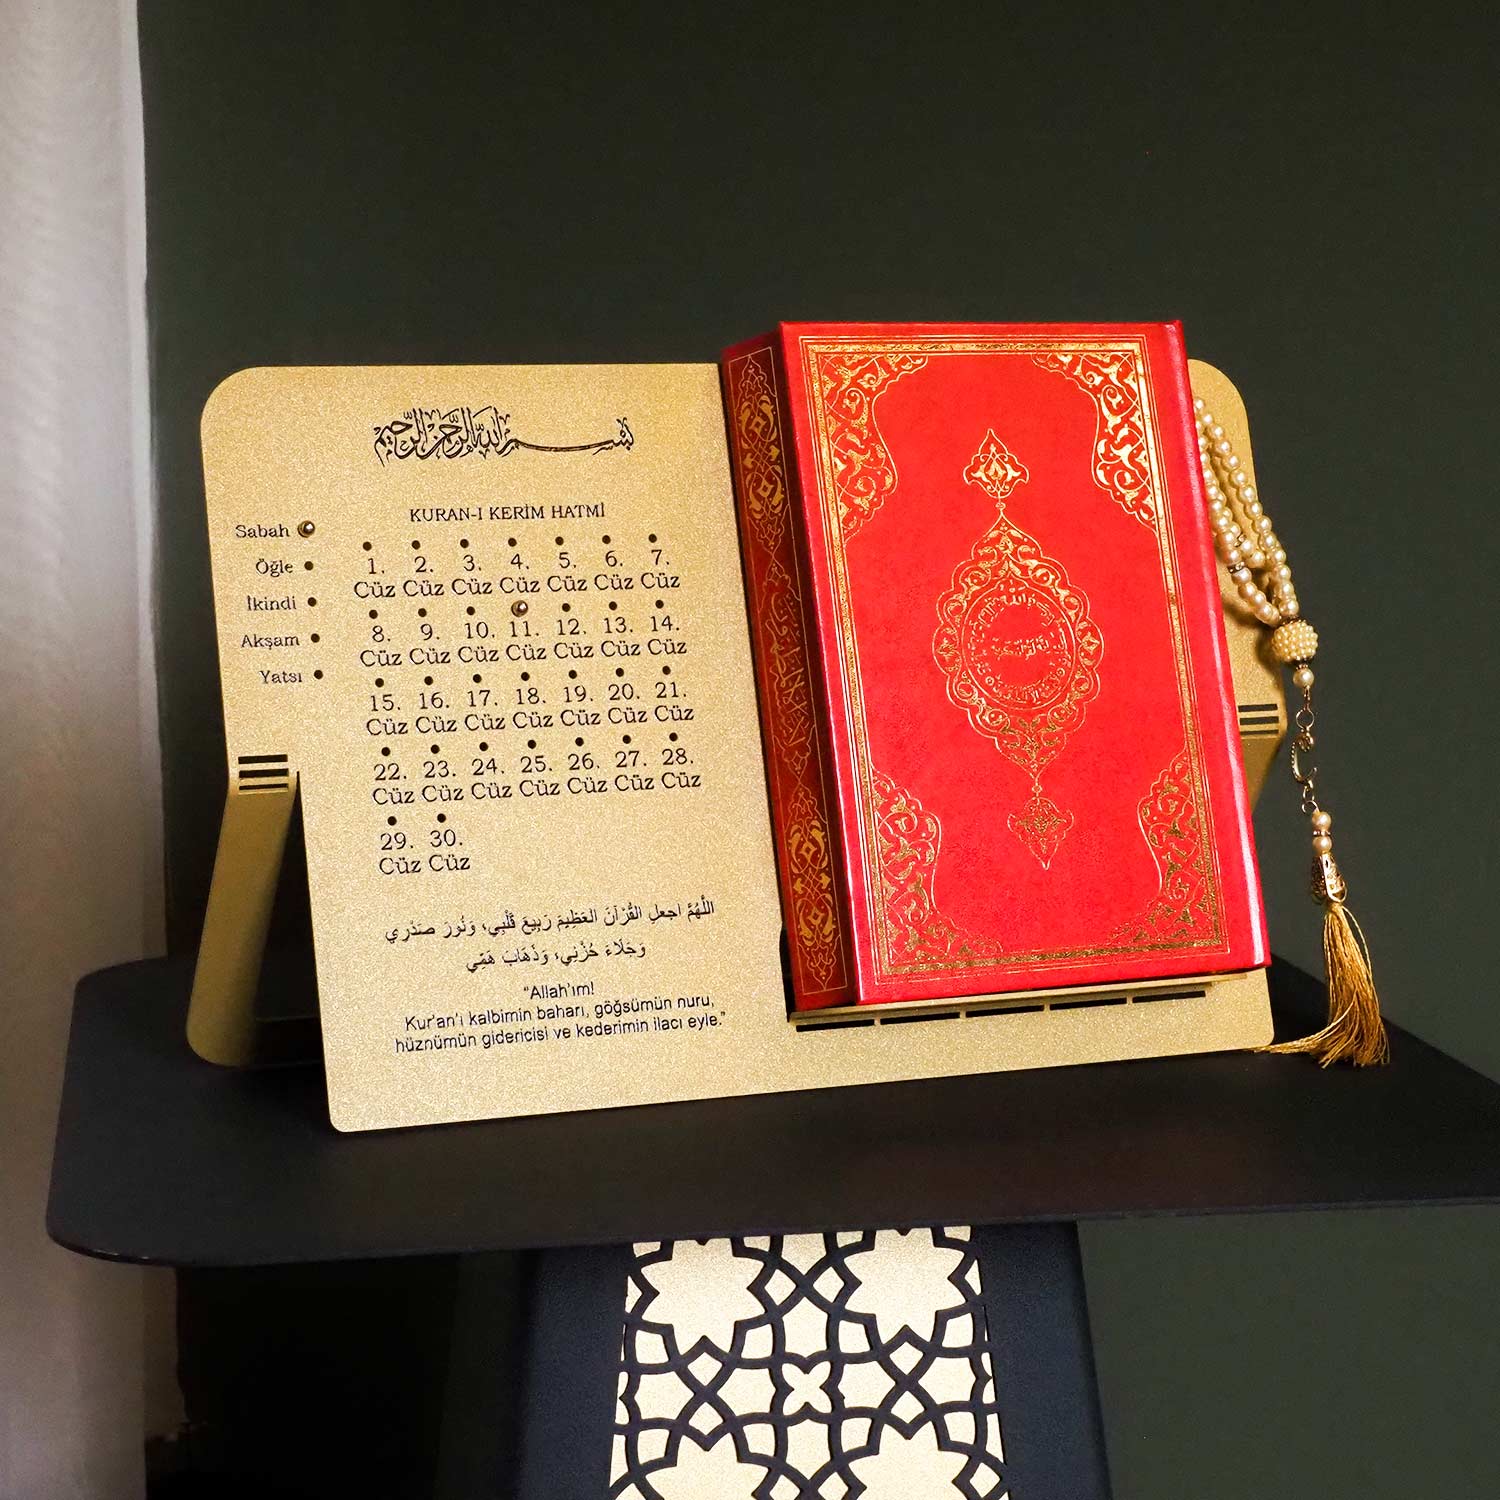 بسم الله الرحمن الرحيم
KURAN-I KERİM HATMİ
Sabah
Öğle
İkindi
Akşam
Yatsı
1. 2. 3. 4. 5. 6. 7.
Cüz Cüz Cüz Cüz Cüz Cüz Cüz
8. 9. 10. 11. 12. 13. 14.
Cüz Cüz Cüz Cüz Cüz Cüz Cüz
15. 16. 17. 18. 19. 20. 21.
Cüz Cüz Cüz Cüz Cüz Cüz Cüz
22. 23. 24. 25. 26. 27. 28.
Cüz Cüz Cüz Cüz Cüz Cüz Cüz
29. 30.
Cüz Cüz
اللَّهُمَّ اجعلِ القُرْآنَ العَظِيمَ رَبِيعَ قَلْبِي، وَنُورَ صَدْرِي
وَجَلَاءَ حُزْنِي، وَذَهَابَ هَمِّي
“Allah’ım!
Kur’an’ı kalbimin baharı, göğsümün nuru,
hüznümün gidericisi ve kederimin ilacı eyle.”